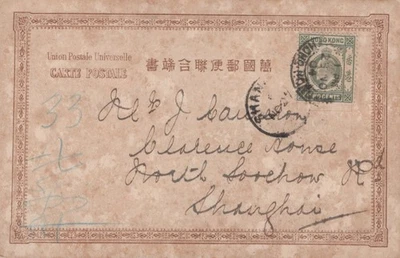 Union Postale Universelle
CARTE POSTALE
書端合聯便郵國萬
HONG KONG
SHAN
33
Mr J
Clarence House
North Soochow Rd
Shanghai